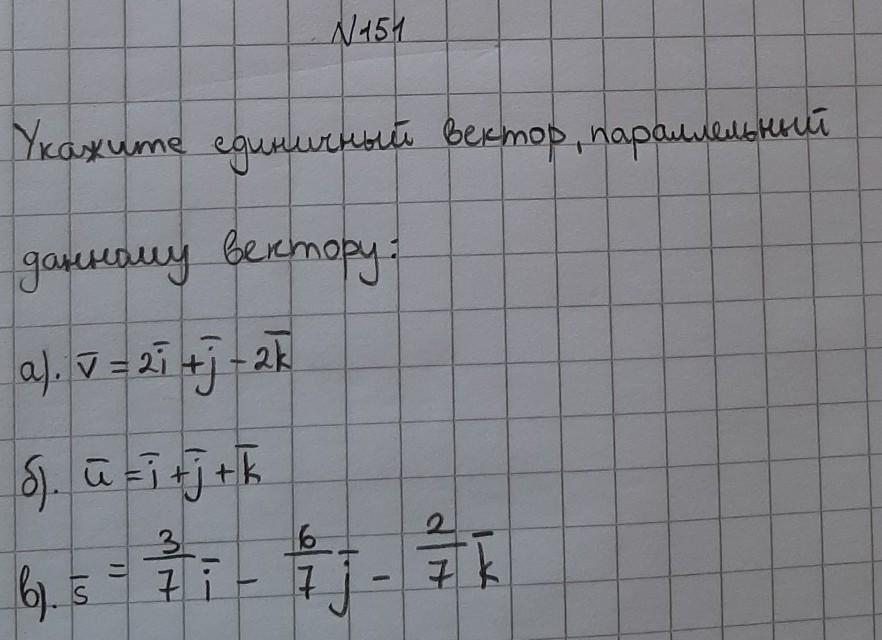 N151
Укажите единичный вектор, параллельный
данному вектору:
а). v̅ = 2i̅ + j̅ - 2k̅
б). u̅ = i̅ + j̅ + k̅
в). s̅ = 3/7 i̅ - 6/7 j̅ - 2/7 k̅